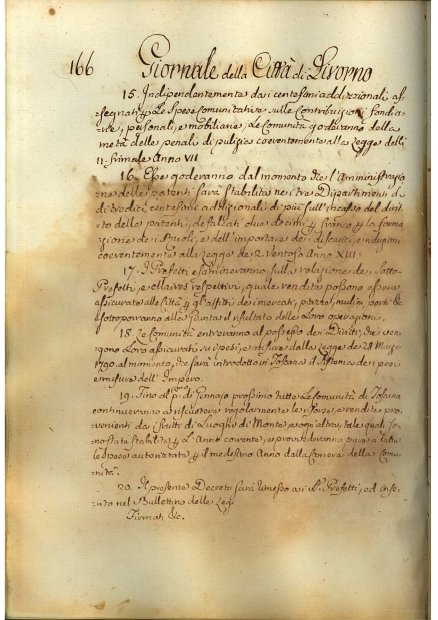 166 Giornale della Città di Livorno
15. Indipendentemente dai centesimi addizzionali as-
segnati le Spese Comunitative sulle Contribuzioni fondia-
rie, personali, e mobiliarie, le Comunità goderanno della
metà delle penali di pulizia coerentemente alla Legge delli
11. frimale Anno VII
16. Esse goderanno dal momento che l'Amministrazio-
ne delle patenti sarà stabilita nei tre Dipartimenti di
di tredici centesimi addizionali di più sull'incasso del dirit-
to delle patenti, defalcati due decimi la forma
zione dei Ruoli, e dell'importare dei discarici, e riduzioni
coerentemente alla Legge de 2. Ventoso Anno XIII
17. I Prefetti esamineranno sulla relazione dei Sotto
Prefetti, e
assicurate alle Città gl'affitti dei mercati, piazze, mulini, porti &c
sottoporranno alla Giunta il risultato delle loro operazioni.
18. Le Comunità entreranno al possesso dei Diritti, che ven-
gono loro assicurati su i pesi, e misure dalla Legge de 28 Marzo
1790. al momento, che sarà introdotto in Toscana il Sistema dei pesi
e misure dell'Impero.
19. Fino al p.º di Gennajo prossimo tutte le Comunità di Toscana
continueranno a riscuotere regolarmente le risorse, e rendite pro-
venienti dai frutti di Luoghi di Monte, e ogni altra, tale quali so-
no state stabilite l'Anno corrente, e provvederanno pure a tutte
le spese autorizzate il medesimo Anno dalla Camera della Comu-
nità.
20. Il presente Decreto sarà rimesso ai Prefetti, ed inse-
rito nel Bullettino delle Leggi
Firmati &c.